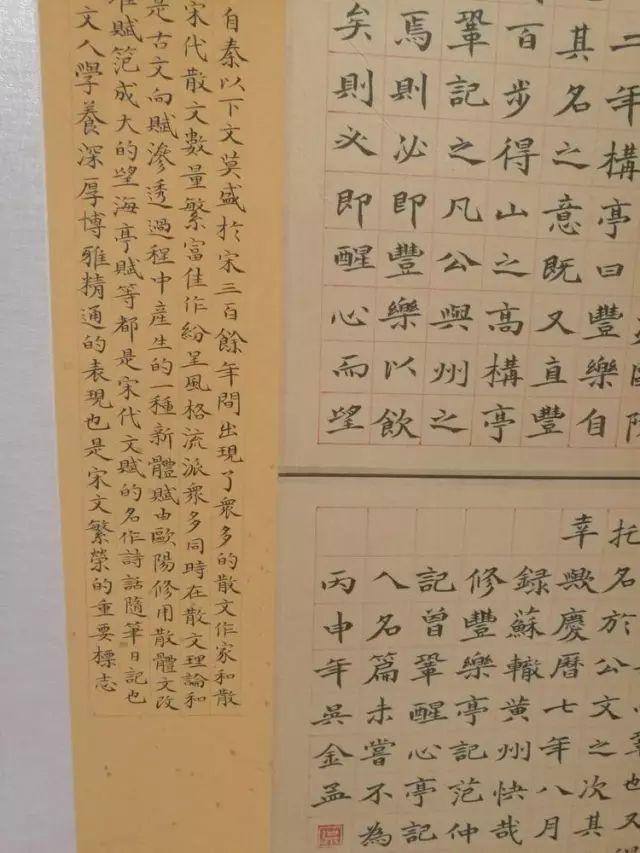 二年構亭曰豐樂自
其名之意既又直豐
百步得山之高構亭
鞏記之凡公與州之
焉則必即豐樂以飲
矣則必即醒心而望
托名於公文之次其
幸歟慶曆七年八月
録蘇轍黃州快哉
修豐樂亭記范仲
記曾鞏醒心亭記
人名篇未嘗不為
丙申年吳金孟
自秦以下文莫盛於宋三百餘年間出現了衆多的散文作家和散
宋代散文數量繁富佳作紛呈風格流派衆多同時在散文理論和
是古文向賦滲透過程中產生的一種新體賦由歐陽修用散體文改
賦范成大的望海亭賦等都是宋代文賦的名作詩話隨筆日記也
文人學養深厚博雅精通的表現也是宋文繁榮的重要標志